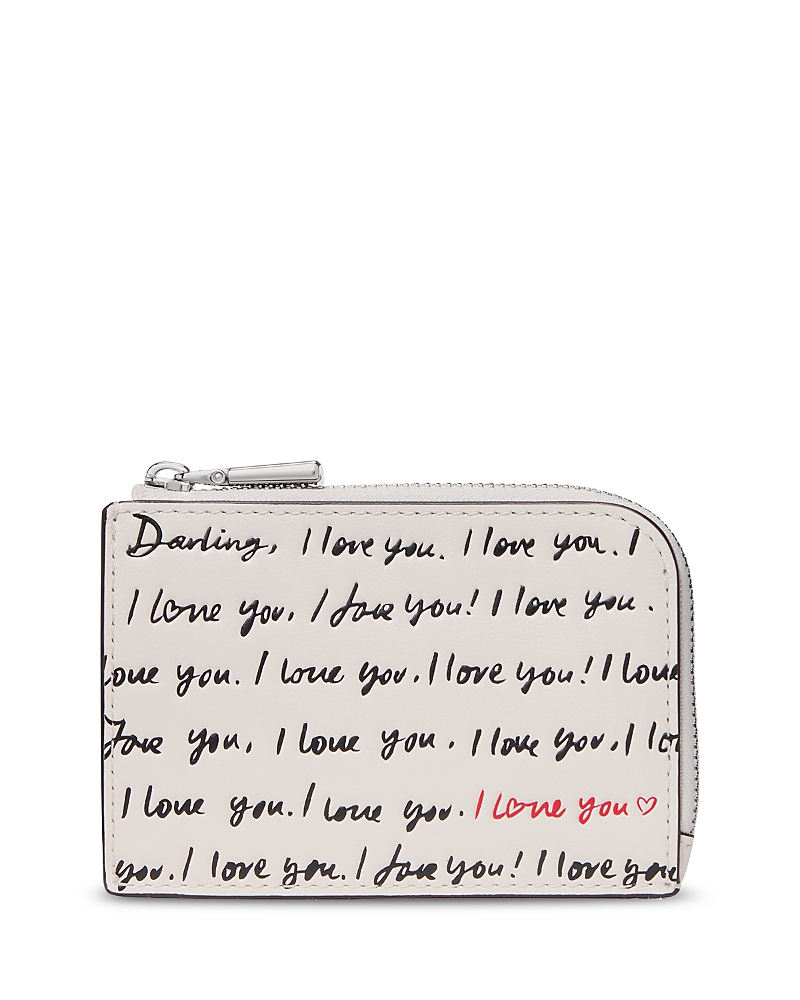 Darling, I love you. I love you. I
I love you. I love you! I love you.
love you. I love you. I love you! I love
love you. I love you. I love you. I lo
I love you. I love you. I love you♡
you. I love you. I love you! I love you